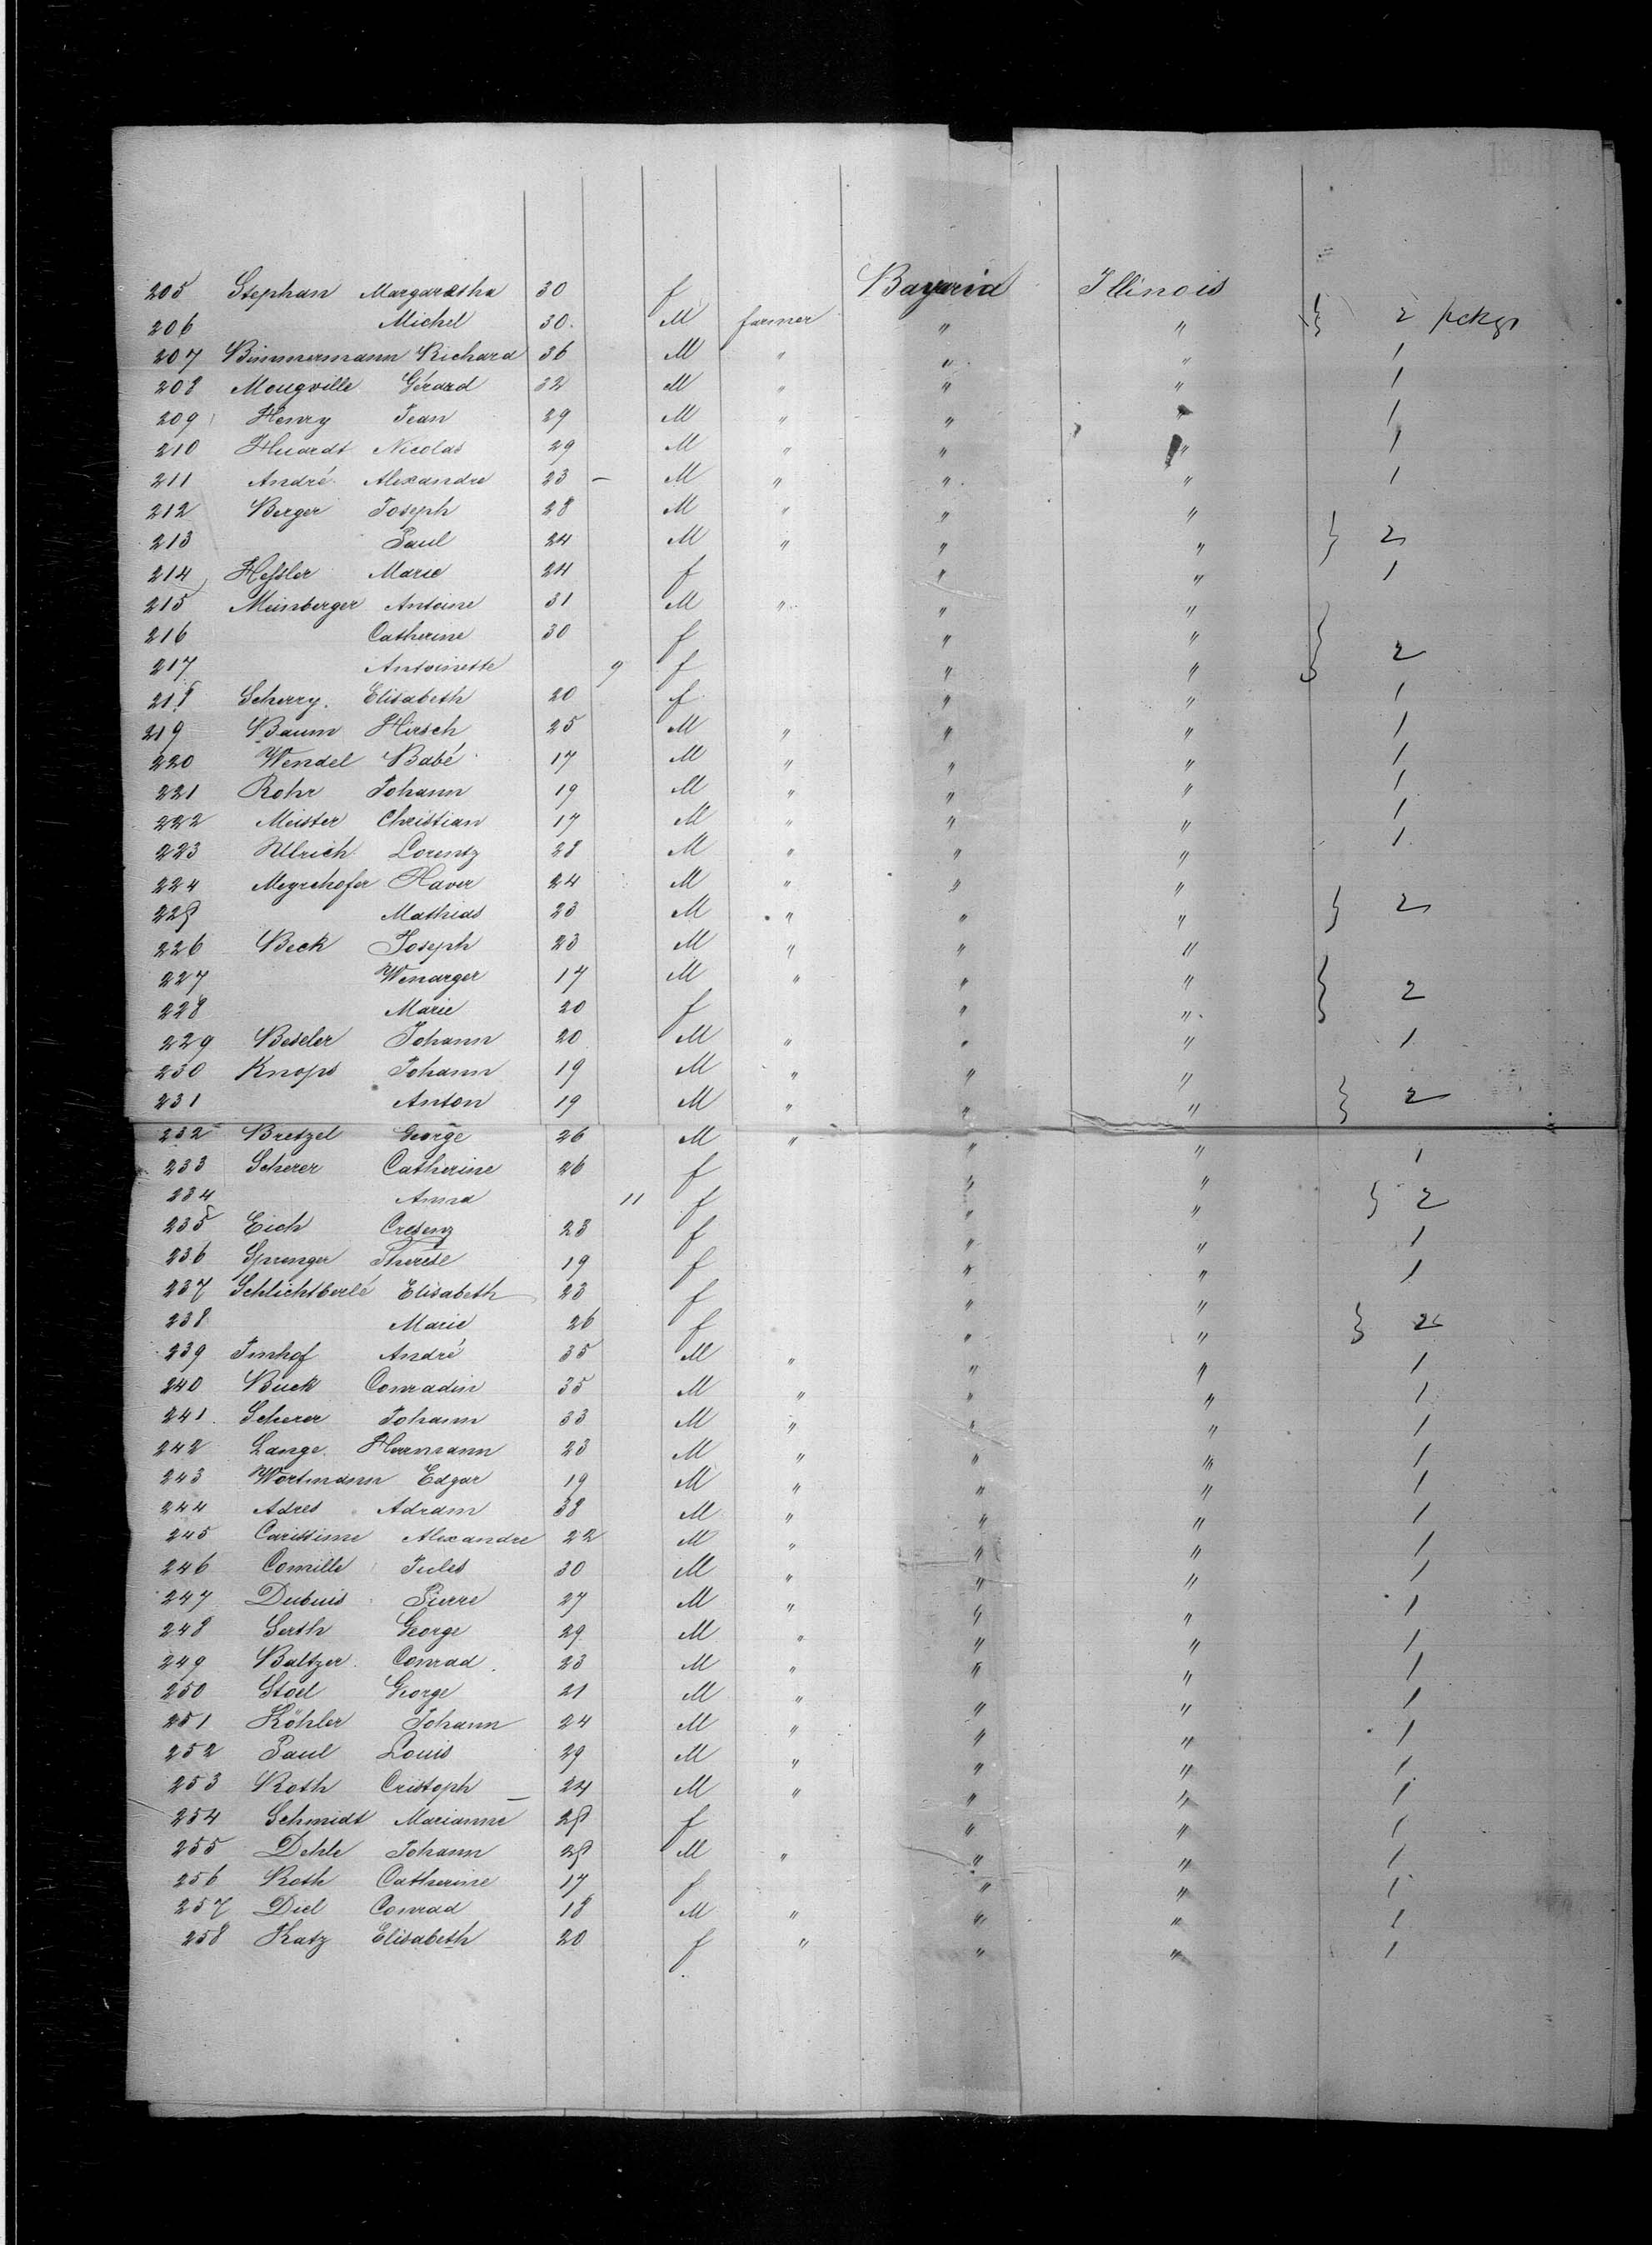 205 Stephan Margaretha 30 f Bayaria Illinois
206 Michel 30. M farmer " " } 2 pckgs
207 Bimmermann Richard 36 M " " " 1
208 Mougville Gérard 32 M " " " 1
209 Henry Jean 29 M " " " 1
210 Huardt Nicolas 29 M " " " 1
211 André Alexandre 23 — M " " " 1
212 Berger Joseph 28 M " " "
213 Paul 24 M " " " } 2
214 Hessler Marie 24 f " " 1
215 Meinberger Antoine 31 M " " "
216 Catherine 30 f " "
217 Antoinette 9 f " " } 2
218 Scherry. Elisabeth 20 f " " 1
219 Baum Hirsch 25 M " " " 1
220 Wendel Babé 17 M " " " 1
221 Rohr Johann 19 M " " " 1
222 Meister Christian 17 M " " " 1
223 Ullrich Lorentz 28 M " " " 1
224 Meyrhofer Xaver 24 M " " "
225 Mathias 23 M " " " } 2
226 Beck Joseph 23 M " " "
227 Wenarger 17 M " " "
228 Marie 20 f " " } 2
229 Beseler Johann 20 M " " " 1
230 Knops Johann 19 M " " "
231 Anton 19 M " " " } 2
232 Bretzel George 26 M " " " 1
233 Scherer Catherine 26 f " "
234 Anna 11 f " " } 2
235 Eich Cresenz 23 f " " 1
236 Sprenger Therese 19 f " " 1
237 Schlichtberlé Elisabeth 23 f " "
238 Marie 26 f " " } 2
239 Imhof André 35 M " " " 1
240 Buck Conradin 35 M " " " 1
241. Scherer Johann 33 M " " " 1
242 Lange. Herrmann 23 M " " " 1
243 Wortmann Edgar 19 M " " " 1
244 Adres Adram 38 M " " " 1
245 Carissime Alexandre 22 M " " " 1
246 Comille Jules 30 M " " " 1
247 Dubuis Pierre 27 M " " " 1
248 Serth George 29 M " " " 1
249 Baltzer. Conrad. 23 M " " " 1
250 Stoel George 21 M " " " 1
251 Köhler Johann 24 M " " " 1
252 Paul Louis 29 M " " " 1
253 Roth Cristoph — 24 M " " " 1
254 Schmidt Marianne 25 f " " 1
255 Dehle Johann 25 M " " " 1
256 Roth Catherine 17 f " " 1
257 Diel Conrad 18 M " " " 1
258 Katz Elisabeth 20 f " " " 1